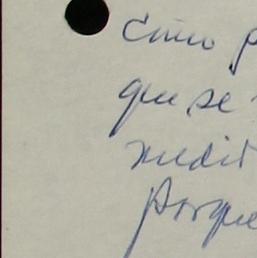 Como p
que se
medit
porque